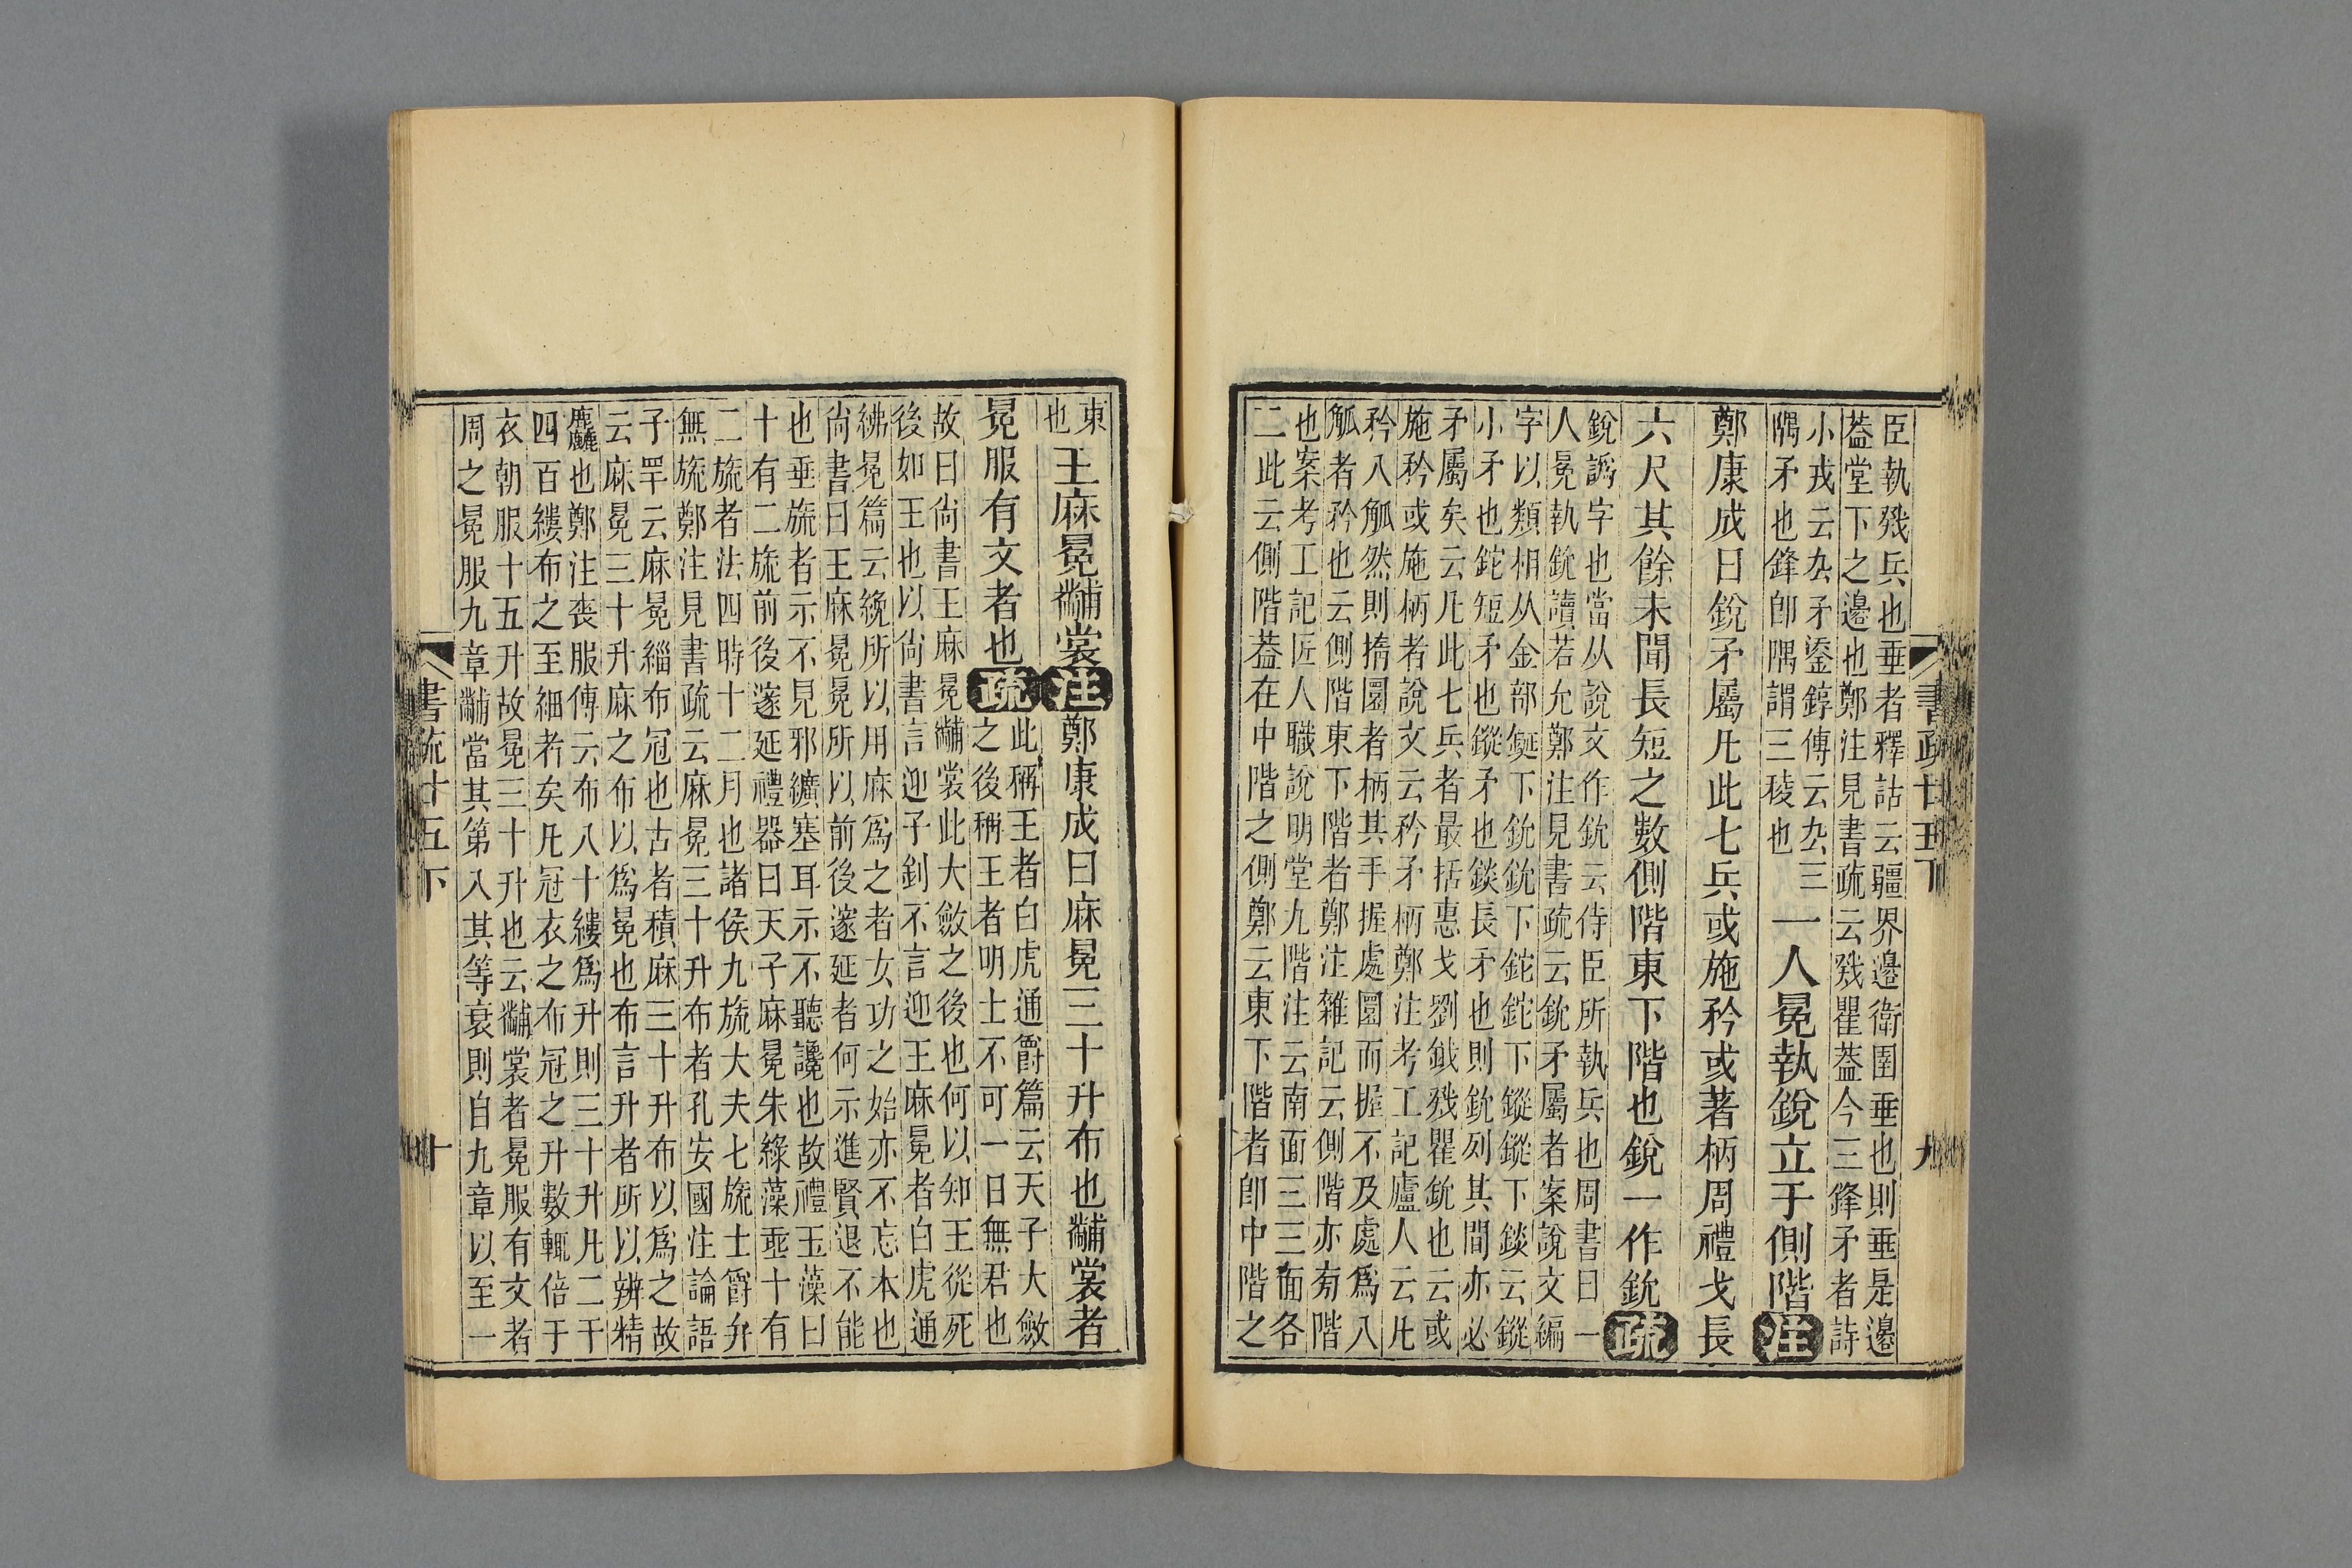 書疏廿五下 九
臣執戣兵也垂者釋詁云疆界邊衛圉垂也則垂是邊
葢堂下之邊也鄭注見書疏云戣瞿葢今三鋒矛者詩
小戎云厹矛鋈錞傳云厹三
隅矛也鋒卽隅謂三稜也
一人冕執銳立于側階注
鄭康成曰銳矛屬凡此七兵或施矜或著柄周禮戈長
六尺其餘未聞長短之數側階東下階也銳一作鈗疏
銳譌字也當从說文作鈗云侍臣所執兵也周書曰一
人冕執鈗讀若允鄭注見書疏云鈗矛屬者案說文編
字以類相从金部鋋下鈗鈗下鉈鉈下鏦鏦下錟云鏦
小矛也鉈短矛也鏦矛也錟長矛也則鈗列其間亦必
矛屬矣云凡此七兵者最括惠戈劉鉞戣瞿鈗也云或
施矜或施柄者說文云矜矛柄鄭注考工記廬人云凡
矜八觚然則撱圜者柄其手握處圜而握不及處爲八
觚者矜也云側階東下階者鄭注雜記云側階亦旁階
也案考工記匠人職說明堂九階注云南面三三面各
二此云側階葢在中階之側鄭云東下階者卽中階之
東
也
王麻冕黼裳注鄭康成曰麻冕三十升布也黼裳者
冕服有文者也疏
此稱王者白虎通爵篇云天子大斂
之後稱王者明士不可一日無君也
故曰尙書王麻冕黼裳此大斂之後也何以知王從死
後加王也以尙書言迎子釗不言迎王麻冕者白虎通
紼冕篇云綩所以用麻爲之者女功之始亦不忘本也
尙書曰王麻冕冕所以前後邃延者何示進賢退不能
也垂旒者示不見邪纊塞耳示不聽讒也故禮玉藻曰
十有二旒前後邃延禮器曰天子麻冕朱綠藻垂十有
二旒者法四時十二月也諸侯九旒大夫七旒士爵弁
無旒鄭注見書疏云麻冕三十升布者孔安國注論語
子罕云麻冕緇布冠也古者積麻三十升布以爲之故
云麻冕三十升麻之布以爲冕也布言升者所以辨精
麤也鄭注喪服傳云布八十縷爲升則三十升凡二千
四百縷布之至細者矣凡冠衣之布冠之升數輒倍于
衣朝服十五升故冕三十升也云黼裳者冕服有文者
周之冕服九章黼當其第八其等衰則自九章以至一
書疏廿五下 十